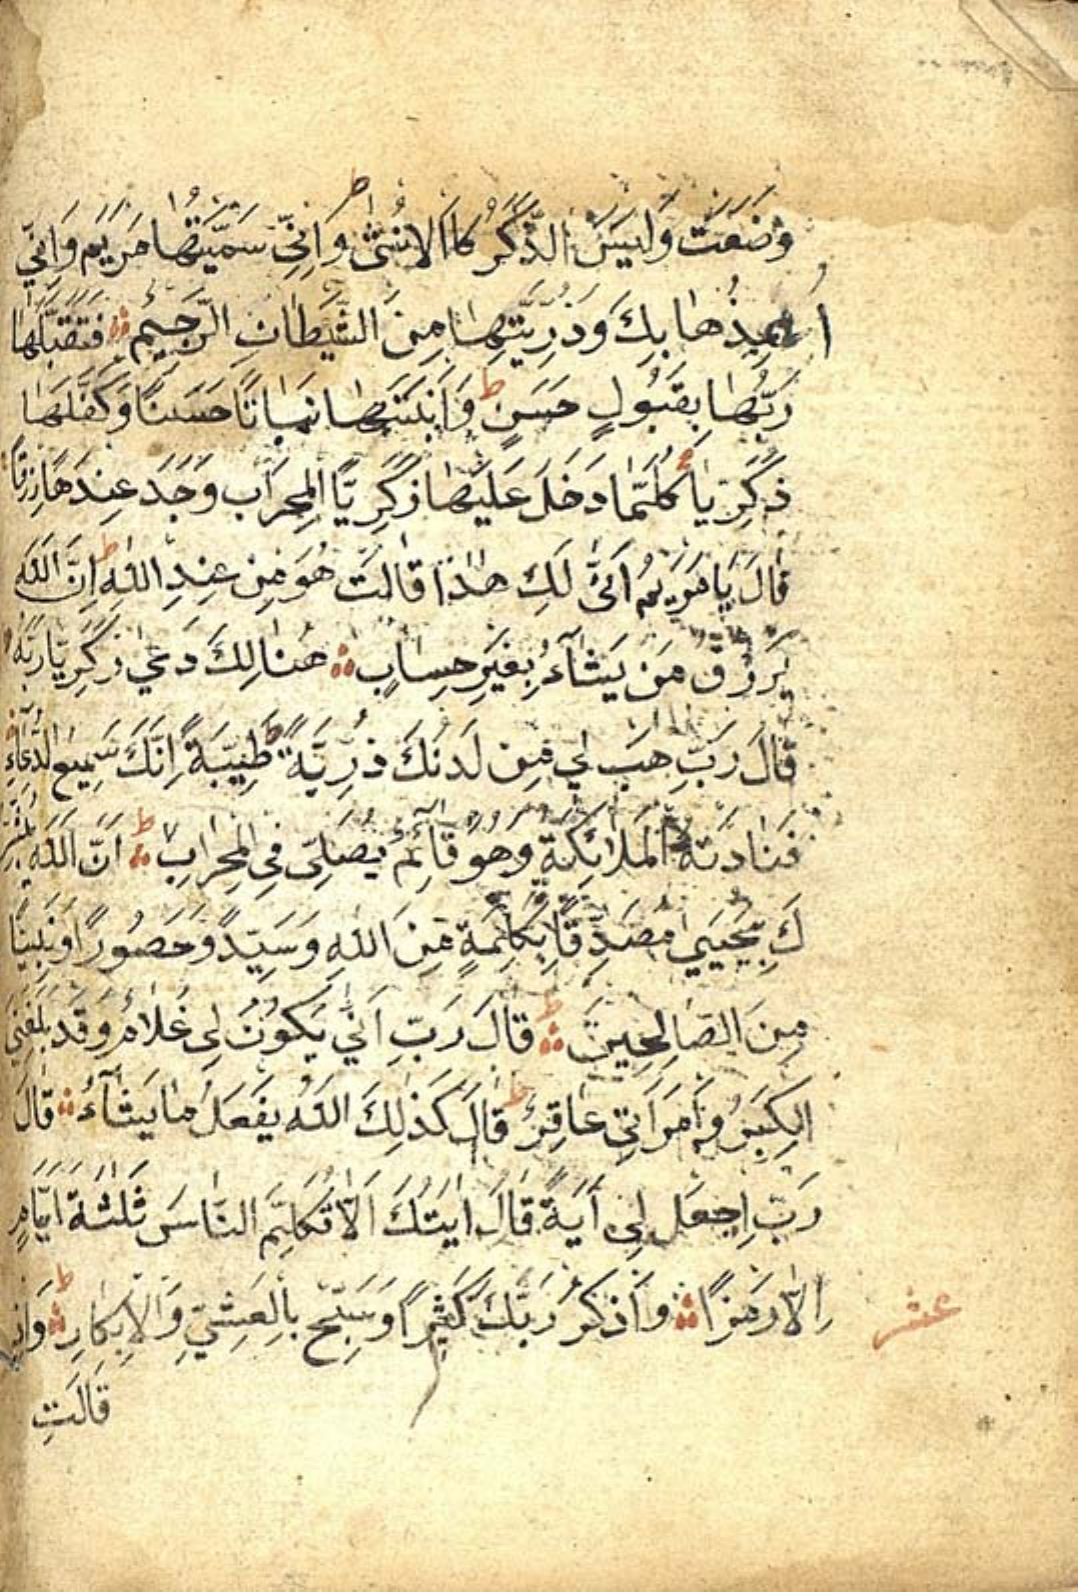 وَضَعَتْ وَلَيْسَ الذَّكَرُ كَا الْاُنْثٰى ط وَاِنِّي سَمَّيْتُهَا مَرْيَمَ وَاِنِّي
اُعِيذُهَا بِكَ وَذُرِّيَّتَهَا مِنَ الشَّيْطَانِ الرَّجِيمِ فَتَقَبَّلَهَا
رَبُّهَا بِقَبُولٍ حَسَنٍ ط وَاَنْبَتَهَا نَبَاتًا حَسَنًا وَكَفَّلَهَا
زَكَرِيَّا كُلَّمَا دَخَلَ عَلَيْهَا زَكَرِيَّا الْمِحْرَابَ وَجَدَ عِنْدَهَا رِزْقًا
قَالَ يَا مَرْيَمُ اَنّٰى لَكِ هٰذَا قَالَتْ هُوَ مِنْ عِنْدِ اللّٰهِ ط اِنَّ اللّٰهَ
يَرْزُقُ مَنْ يَشَآءُ بِغَيْرِ حِسَابٍ هُنَالِكَ دَعٰى زَكَرِيَّا رَبَّهُ
قَالَ رَبِّ هَبْ لِي مِنْ لَدُنْكَ ذُرِّيَّةً طَيِّبَةً اِنَّكَ سَمِيعُ الدُّعَآءِ
فَنَادَتْهُ الْمَلَائِكَةُ وَهُوَ قَآئِمٌ يُصَلِّي فِي الْمِحْرَابِ ط اَنَّ اللّٰهَ يُبَشِّرُ
كَ بِيَحْيٰي مُصَدِّقًا بِكَلِمَةٍ مِنَ اللّٰهِ وَسَيِّدًا وَحَصُورًا وَنَبِيًّا
مِنَ الصَّالِحِينَ ط قَالَ رَبِّ اَنّٰي يَكُونُ لِي غُلَامٌ وَقَدْ بَلَغَنِيَ
الْكِبَرُ وَامْرَاَتِي عَاقِرٌ ط قَالَ كَذٰلِكَ اللّٰهُ يَفْعَلُ مَا يَشَآءُ قَالَ
رَبِّ اِجْعَلْ لِي آيَةً قَالَ اٰيَتُكَ اَلَّا تُكَلِّمَ النَّاسَ ثَلٰثَةَ اَيَّامٍ
اِلَّا رَمْزًا وَاذْكُرْ رَبَّكَ كَثِيرًا وَسَبِّحْ بِالْعَشِيِّ وَالْاِبْكَارِ ط وَاِذْ
عشر
قَالَتِ